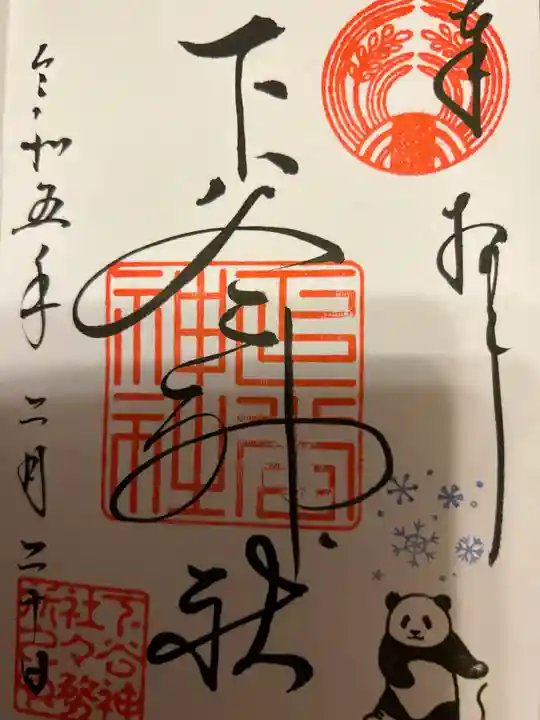 奉拝
下谷神社
下谷神社
令和五年 二月 二十日
下谷神
社々務